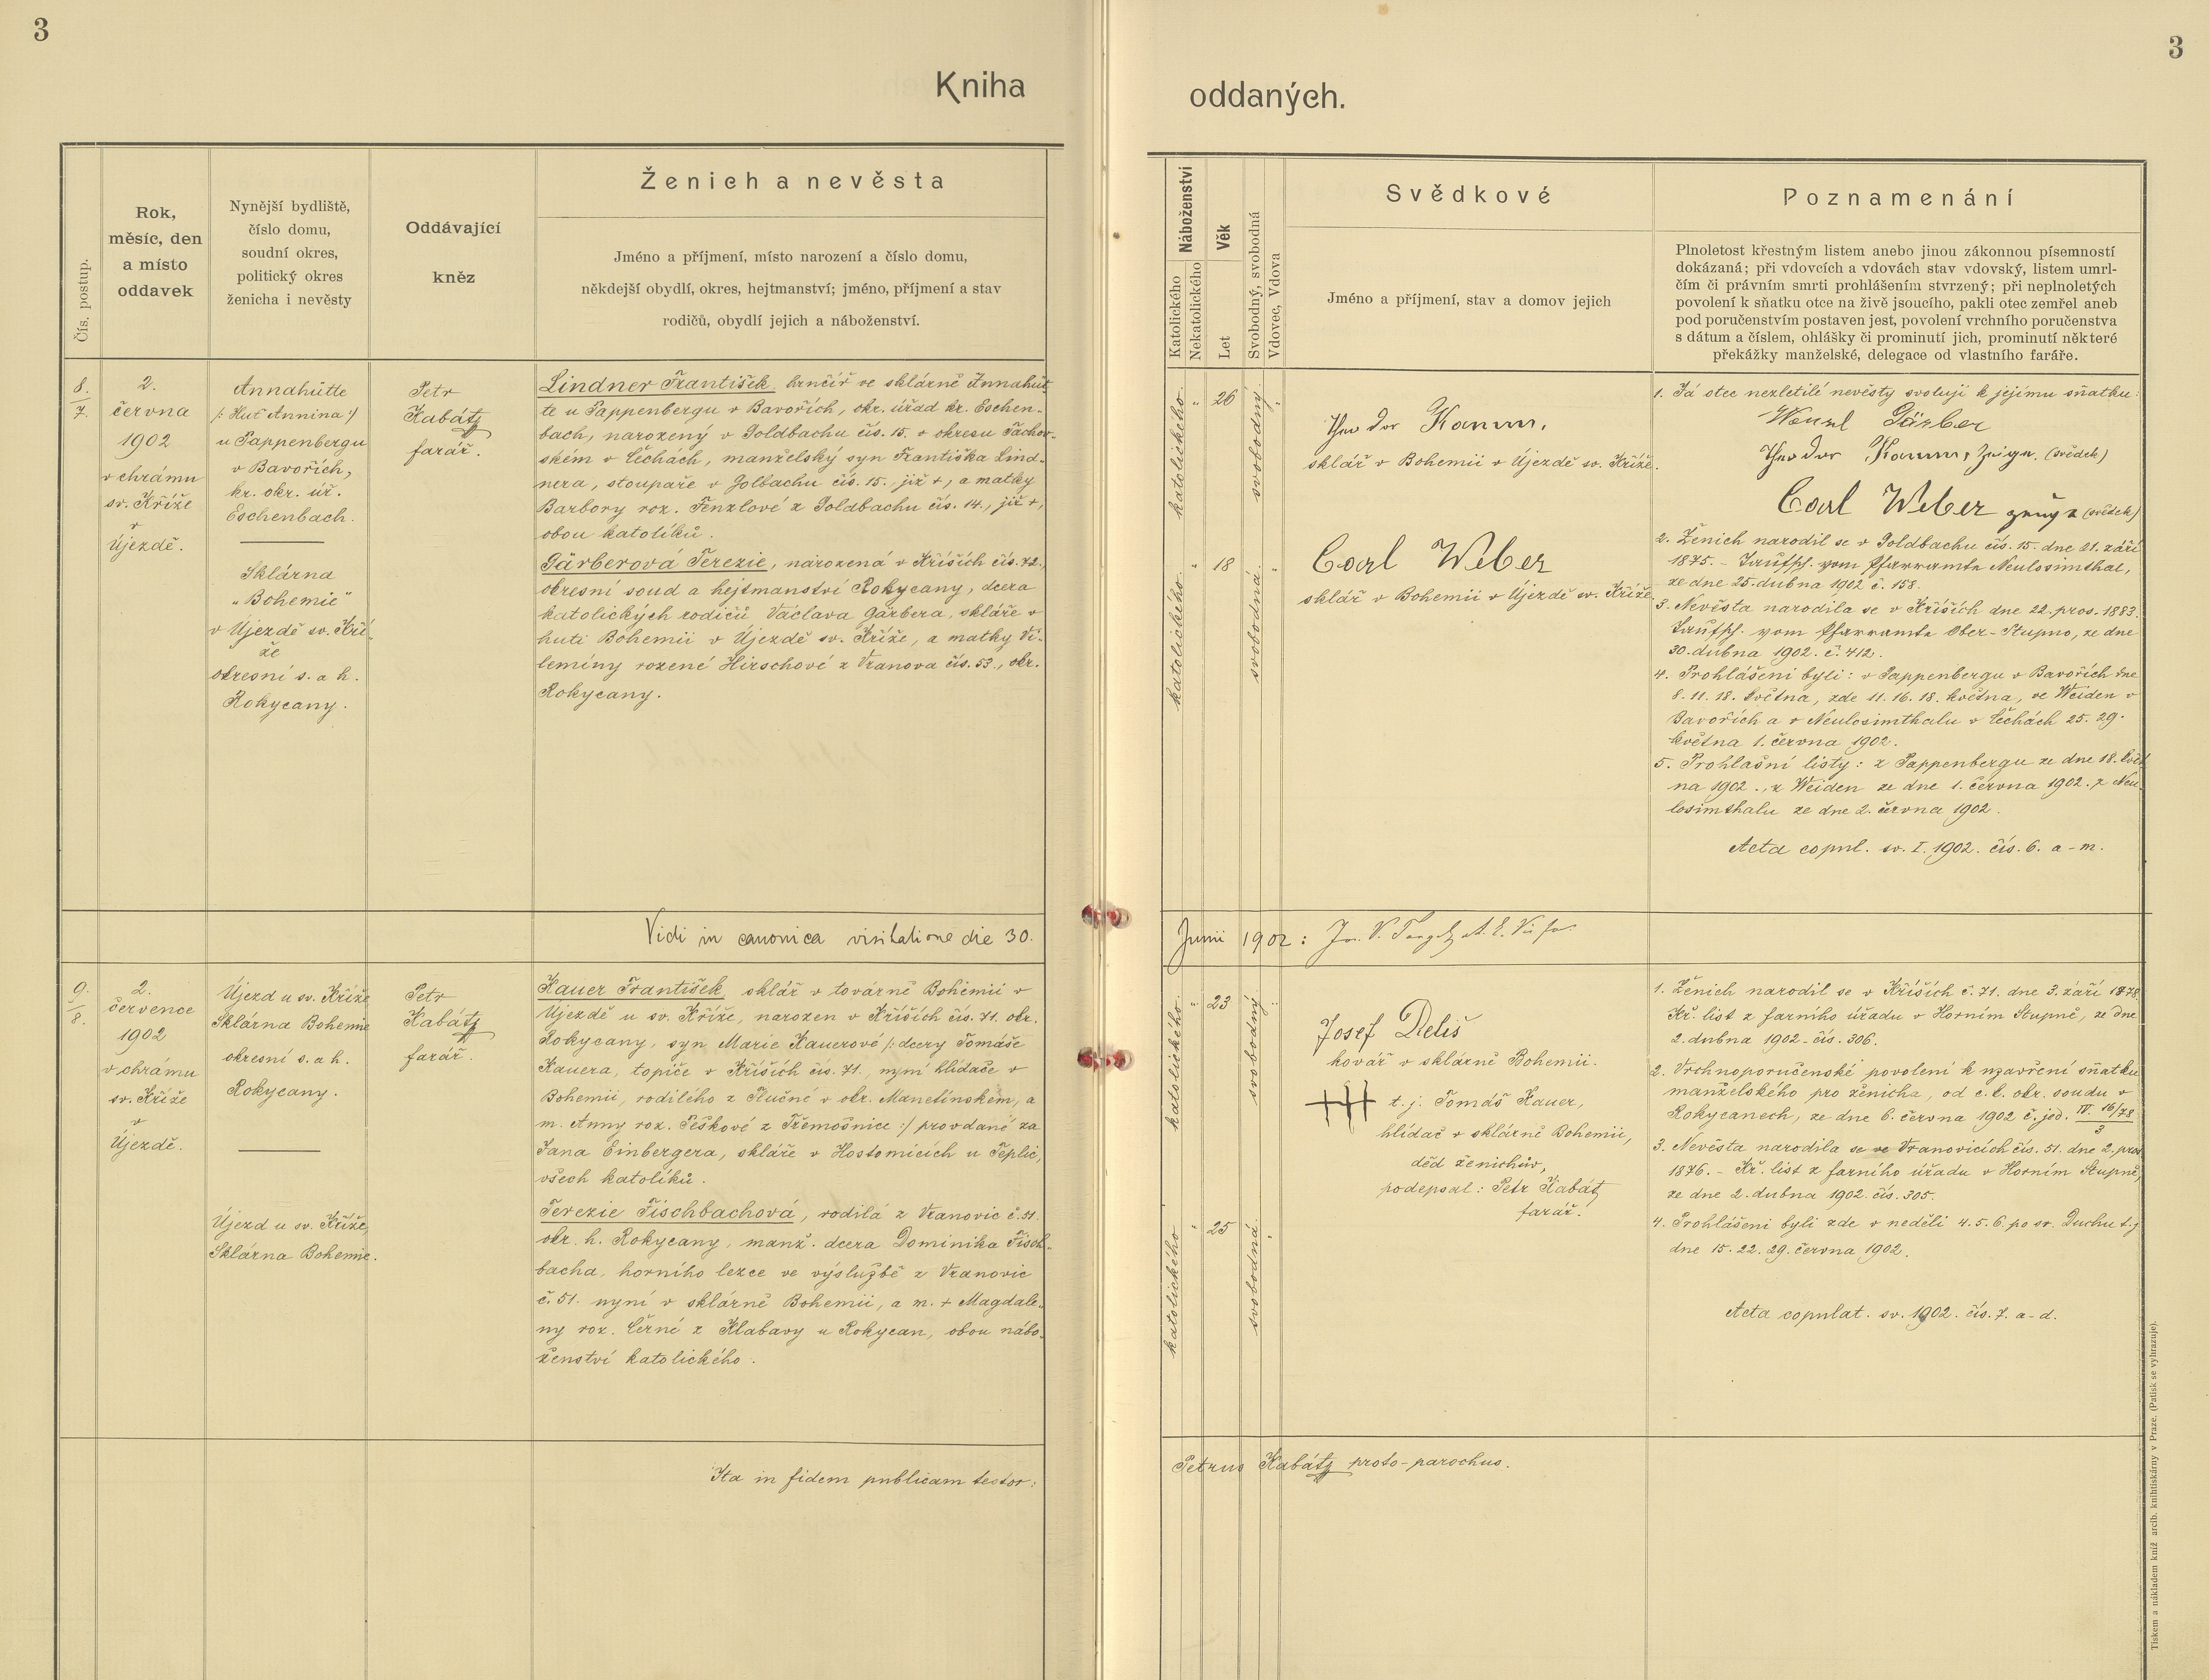 3
Kniha
Čís. postup.
Rok,
měsíc, den
a místo
oddavek
Nynější bydliště,
číslo domu,
soudní okres,
politický okres
ženicha i nevěsty
Oddávající
kněz
Ženich a nevěsta
Jméno a příjmení, místo narození a číslo domu,
někdejší obydlí, okres, hejtmanství; jméno, příjmení a stav
rodičů, obydlí jejich a náboženství.
8.
7.
2.
června
1902
v chrámu
sv. Kříže
v
Újezdě.
Annahütte
/: Huť Annina :/
u Pappenbergu
v Bavořích,
kr. okr. úř.
Eschenbach.
Sklárna
„Bohemie"
v Újezdě sv. Kří-
že
okresní s. a h.
Rokycany.
Petr
Kabátz
farář.
Lindner František, hrnčíř ve sklárně Annahüt-
te u Pappenbergu v Bavořích, okr. úřad kr. Eschen-
bach, narozený v Goldbachu čís. 15. v okresu Tachov-
ském v Čechách, manželský syn Františka Lind-
nera, stoupaře v Golbachu čís. 15., již +, a matky
Barbory roz. Fenzlové z Goldbachu čís. 14., již +,
obou katolíků.
Gärberová Terezie, narozená v Kříších čís. 72.,
okresní soud a hejtmanství Rokycany, dcera
katolických rodičů Václava Gärbera, skláře v
huti Bohemii v Újezdě sv. Kříže, a matky Vi-
lemíny rozené Hirschové z Vranova čís. 53., okr.
Rokycany.
Vidi in canonica visitatione die 30.
9.
8.
2.
července
1902
v chrámu
sv. Kříže
v
Újezdě.
Újezd u sv. Kříže
Sklárna Bohemie
okresní s. a h.
Rokycany.
Újezd u sv. Kříže,
Sklárna Bohemie.
Petr
Kabátz
farář.
Kauer František, sklář v továrně Bohemii v
Újezdě u sv. Kříže, narozen v Kříších čís. 71. okr.
Rokycany, syn Marie Kauerové /: dcery Tomáše
Kauera, topiče v Kříších čís. 71., nyní hlídače v
Bohemii, rodilého z Plučné v okr. Manetínském, a
m. Anny roz. Peškové z Třemošnice :/ provdané za
Jana Einbergera, skláře v Hostomicích u Teplic,
všech katolíků.
Terezie Fischbachová, rodilá z Vranovic č. 51.
okr. h. Rokycany, manž. dcera Dominika Fisch-
bacha, horního lezce ve výslužbě z Vranovic
č. 51. nyní v sklárně Bohemii, a m. + Magdale-
ny roz. Černé z Klabavy u Rokycan, obou nábo-
ženství katolického.
Ita in fidem publicam testor:
3
oddaných.
Náboženství
Katolického
Nekatolického
Věk
Let
Svobodný, svobodná
Vdovec, Vdova
Svědkové
Jméno a příjmení, stav a domov jejich
Poznamenání
Plnoletost křestným listem anebo jinou zákonnou písemností
dokázaná; při vdovcích a vdovách stav vdovský, listem umrl-
čím či právním smrti prohlášením stvrzený; při neplnoletých
povolení k sňatku otce na živě jsoucího, pakli otec zemřel aneb
pod poručenstvím postaven jest, povolení vrchního poručenstva
s dátum a číslem, ohlášky či prominutí jich, prominutí některé
překážky manželské, delegace od vlastního faráře.
katolického
"
26
svobodný
"
Theodor
sklář v Bohemii v Újezdě sv. Kříže.
katolického
"
18
svobodná
"
Carl Weber
sklář v Bohemii v Újezdě sv. Kříže.
1. Já otec nezletilé nevěsty svoluji k jejímu sňatku:
Wenzl Gärber
Theodor (svědek)
Carl Weber (svědek)
2. Ženich narodil se v Goldbachu čís. 15. dne 21. září
1875. – Taufsch. vom Pfarramte Neulosimthal,
ze dne 25. dubna 1902 č. 158.
3. Nevěsta narodila se v Kříších dne 22. pros. 1883.
Taufsch. vom Pfarramte Ober-Stupno, ze dne
30. dubna 1902. č. 412.
4. Prohlášeni byli: v Pappenbergu v Bavořích dne
8. 11. 18. května, zde 11. 16. 18. května, ve Weiden v
Bavořích a v Neulosimthalu v Čechách 25. 29.
května 1. června 1902.
5. Prohlašní listy: z Pappenbergu ze dne 18. květ-
na 1902., z Weiden ze dne 1. června 1902. z Neu-
losimthalu ze dne 2. června 1902.
Acta copul. sv. I. 1902. čís. 6. a-m.
Junii 1902:
katolického
"
23
svobodný
"
Josef Deliš
kovář v sklárně Bohemii.
+++ t. j. Tomáš Kauer,
hlídač v sklárně Bohemii,
děd ženichův,
podepsal: Petr Kabátz
farář.
katolického
"
25
svobodná
"
1. Ženich narodil se v Kříších č. 71. dne 3. září 1878.
Kř. list z farního úřadu v Horním Stupně, ze dne
2. dubna 1902. čís. 306.
2. Vrchnoporučenské povolení k uzavření sňatku
manželského pro ženicha, od c. k. okr. soudu v
Rokycanech, ze dne 6. června 1902 č. jed. IV. 16/78
3
3. Nevěsta narodila se ve Vranovicích čís. 51. dne 2. pros.
1876. – Kř. list z farního úřadu v Horním Stupně,
ze dne 2. dubna 1902. čís. 305.
4. Prohlášeni byli zde v neděli 4. 5. 6. po sv. Duchu t. j.
dne 15. 22. 29. června 1902.
Acta copulat. sv. 1902. čís. 7. a-d.
Petrus Kabátz proto-parochus.
Tiskem a nákladem kníž. arcib. knihtiskárny v Praze. (Patisk se vyhrazuje).